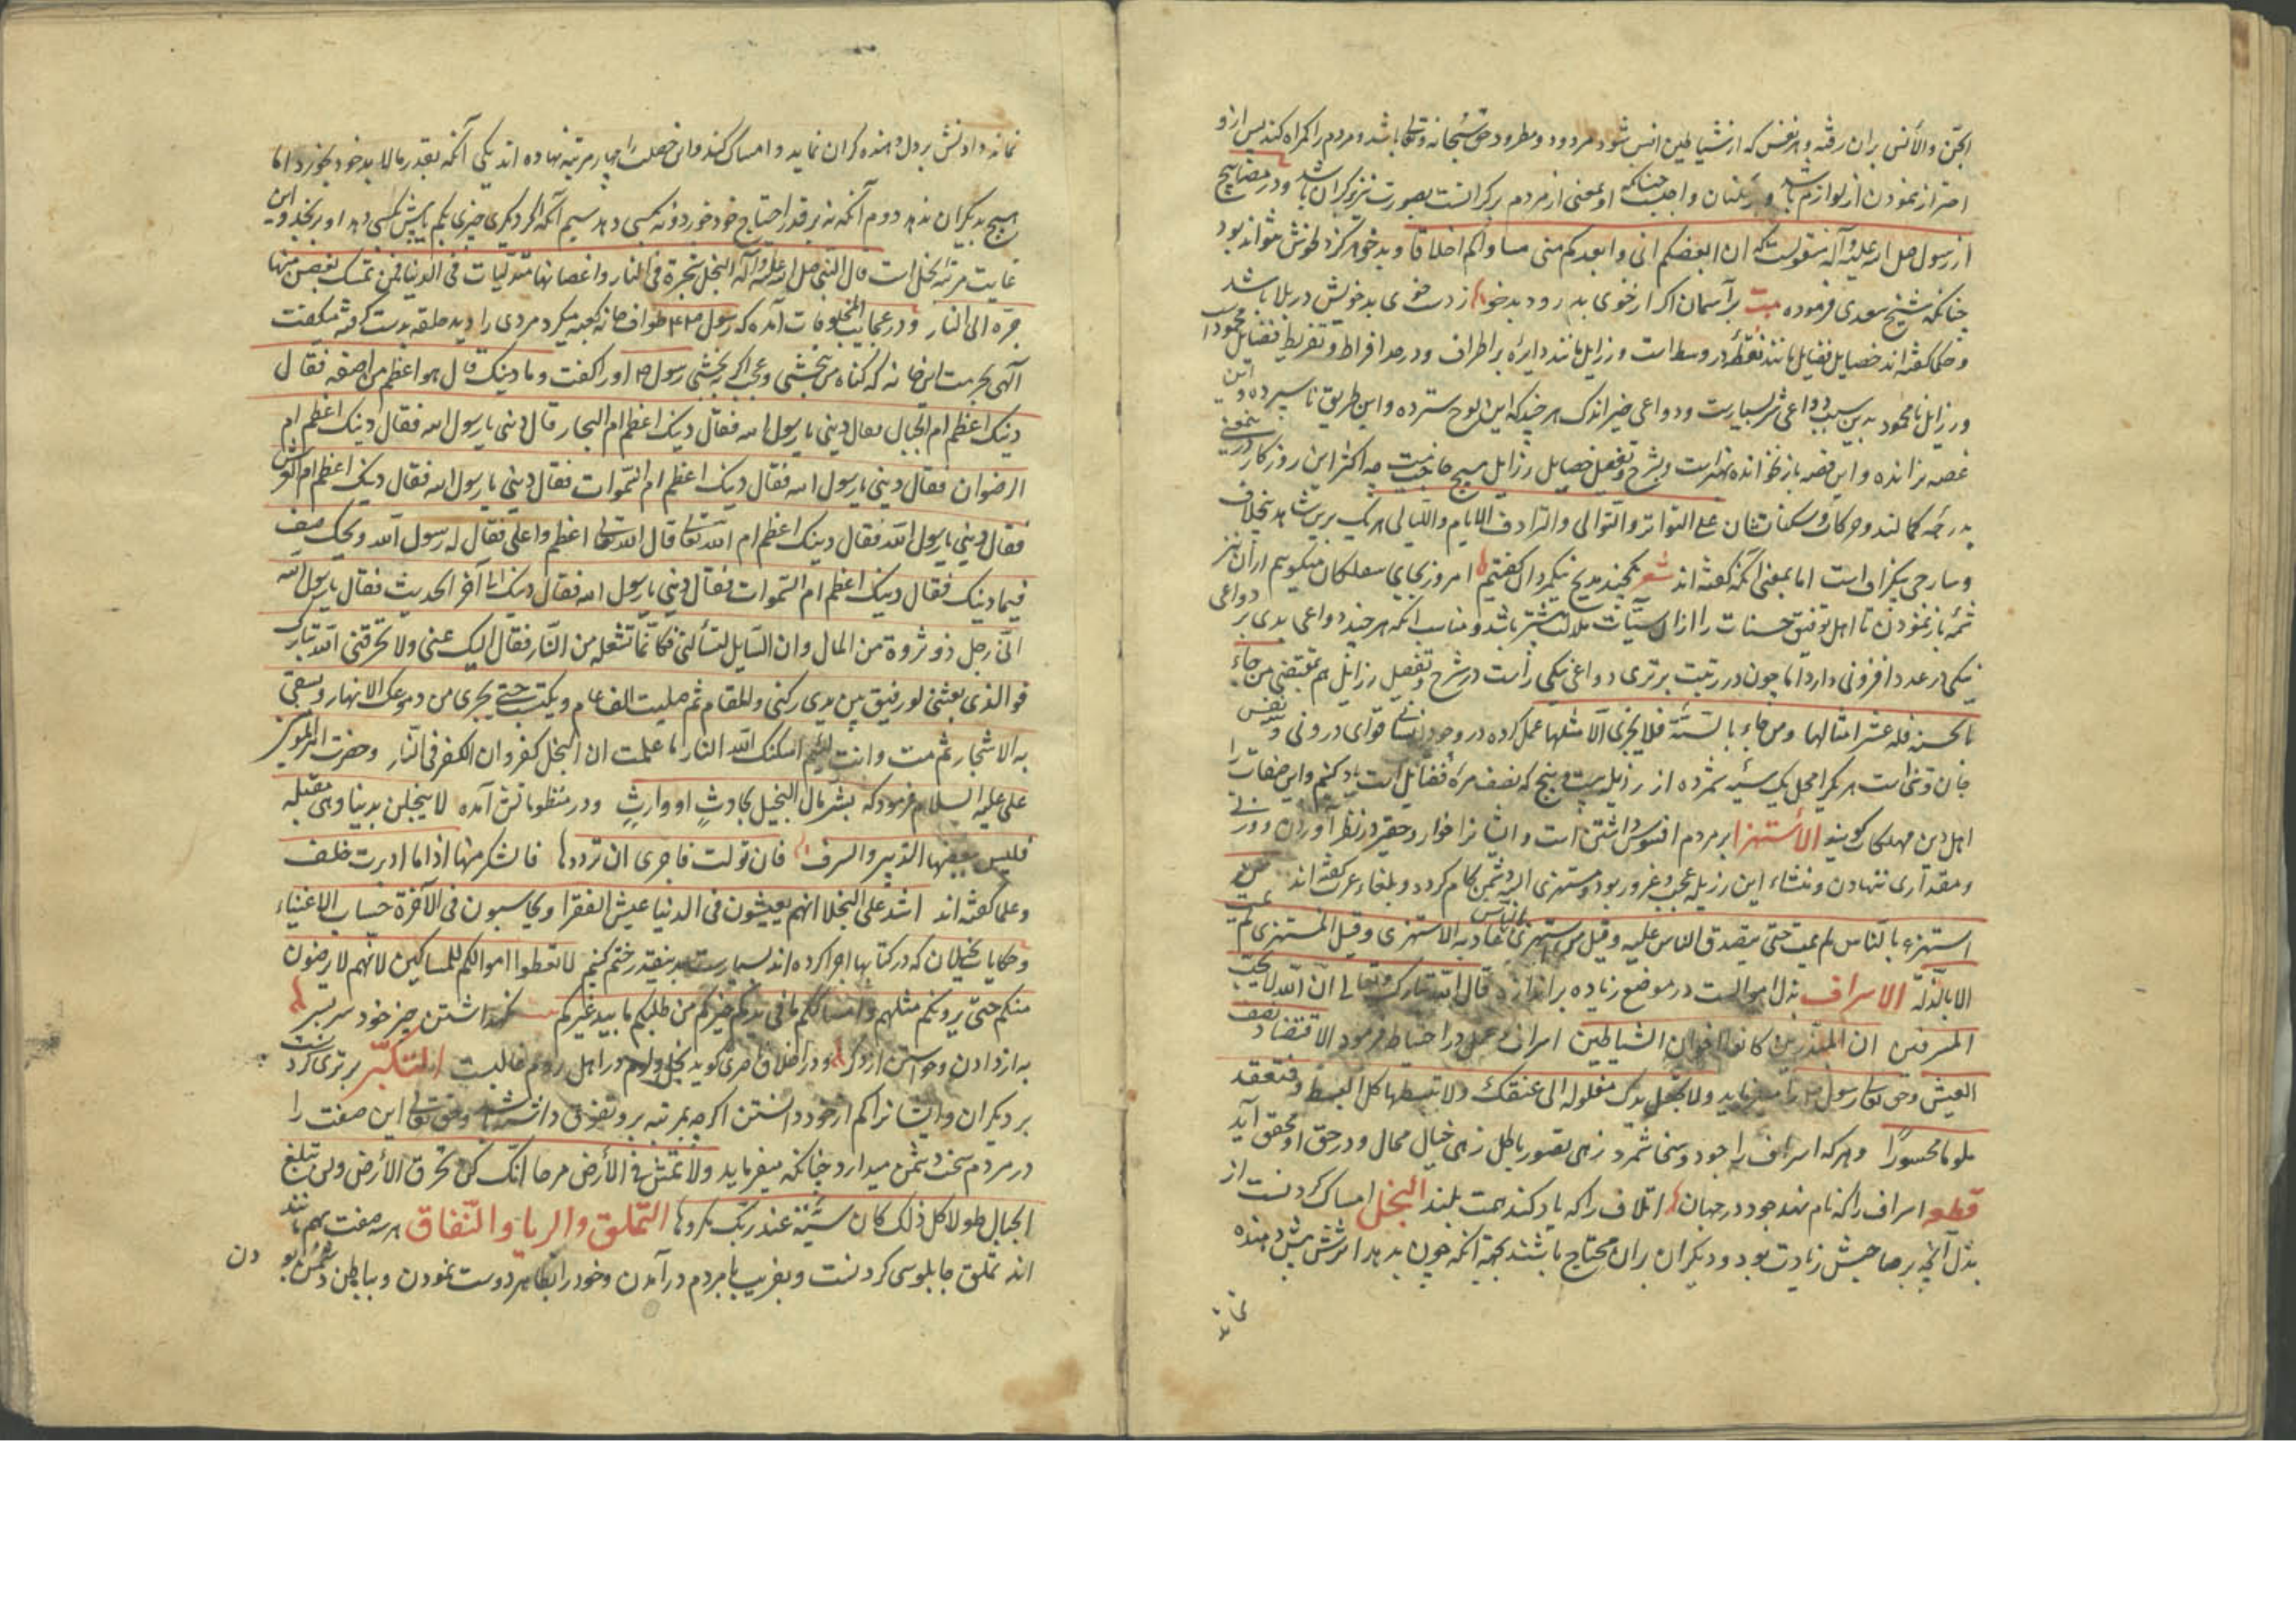 الجن والأنس بران رفته و هر نفس که از شیاطین انس شود مردود و مطرود حق سبحانه وتعالی باشد و مردم را گمراه کند پس ازو
احتراز نمودن از لوازم باشد و واجب چنانکه او بمعنی از مردم برکرانست بصورت نیز برکران باشد و در مصابیح
از رسول صلی الله علیه وآله منقولست که ان ابغضکم الی وابعدکم منی مساوئکم اخلاقا و بدخو هرگز دلخوش نتواند بود
چنانکه شیخ سعدی فرموده بیت بر آسمان اگر از خوی بد رود بدخو ز دست خوی بد خویش در بلا باشد
و حکما گفته اند خصایل فضایل مانند نقطه در وسط است و رزایل مانند دایره بر اطراف و در حد افراط و تفریط فضایل محمود است
و رزایل نامحمود بدین سبب دواعی شر بسیارست و دواعی خیر اندک هر چند که این لوح سترده و این طریق ناسپرده و این
غصه نرانده و این قصه باز نخوانده بهتر است و بشرح و تفصیل خصایل رزایل هیچ حاجت نیست چه اکثر این روزگار درین معنی
بدرجه کمالند و حرکات و سکناتشان علی التواتر والتوالی والترادف الایام واللیالی هر یک برین شاهد بخلاف
اما بمعنی آنکه گفته اند شعر نیکمردان گفتیم امروز بجای میگوییم از آن نیز
شمه باز نمودن تا اهل توفیق حسنات را از آن سیئات ملالت بیشتر باشد و مناسب آنکه هر چند دواعی بدی بر دواعی
نیکی در عدد افزونی دارد اما چون در رتبت برتری دواعی نیکی راست در شرح و تفصیل رزایل هم بمقتضی من جاء
بالحسنة فله عشر امثالها ومن جاء بالسیئة فلا یجزی الا مثلها عمل کرده در وجود انسانی قوای درونی و نفس
هر یکرا محل یک سیئه شمرده از رذیله بیست و پنج که نصف فضائل است یاد کنیم و این صفات را
اهل دین مهلکات گویند الأستهزا بر مردم افسوس داشتن است و ایشانرا خوار و حقیر در نظر آوردن و وزنی
و مقداری ننهادن و منشاء این رزیله عجب و غرور بود و مستهزی البته دشمن کام گردد و بلغاء عرب گفته اند من
استهزء بالناس لم یمت حتی یتصدق الناس علیه وقیل من استهزی بالناس عاد به الاستهزی وقیل المستهزی لم یمت
الا بالذلة الاسراف بذل اموالست در موضع زیاده بر اندازه قال الله تبارک وتعالی ان الله لا یحب
المسرفین ان المبذرین کانوا اخوان الشیاطین اسراف در احتیاط فرمود الاقتصاد نصف
العیش و حق تعالی رسول را میفرماید ولا تجعل یدک مغلولة الی عنقک ولا تبسطها کل البسط فتقعد
ملوما محسورا و هر که اسراف را جود و سخا شمرد زهی تصور باطل زهی خیال محال و در حق او محقق آید
قطعه اسراف را که نام نهد جود در جهان اتلاف را که یاد کند همت بلند البخل امساک کردنست از
بذل آنچه بر صاحبش زیادت بود و دیگران بران محتاج باشند بجهة آنکه چون بدهد اثرش پیش دهنده
نماند
نماند و دادنش بر دل دهنده گران نماید و امساک کند و این خصلت را چهار مرتبه نهاده اند یکی آنکه بقدر مالابد خود بخورد اما
هیچ بدیگران ندهد دوم آنکه نه بر قدر احتیاج خود خورد و نه بکسی دهد سیم آنکه اگر دیگری چیزی بکم یا بیش بکسی دهد او برنجد و این
غایت مرتبه بخل است قال النبی صلی الله علیه وآله البخل شجرة فی النار واغصانها متدلیات فی الدنیا فمن تمسک بغصن منها
جره الی النار و در عجایب المخلوقات آمده که رسول طواف خانه کعبه میکرد مردی را دید حلقه بدست گرفته میگفت
الهی بحرمت این خانه که گناه من ببخشی و عجب اگر ببخشی رسول او را گفت وما ذنبک قال هو اعظم من اصفه فقال
ذنبک اعظم ام الجبال فقال ذنبی یا رسول الله فقال ذنبک اعظم ام البحار قال ذنبی یا رسول الله فقال ذنبک اعظم ام
الرضوان فقال ذنبی یا رسول الله فقال ذنبک اعظم ام السموات فقال ذنبی یا رسول الله فقال ذنبک اعظم ام العرش
فقال ذنبی یا رسول الله فقال ذنبک اعظم ام الله تعالی قال الله تعالی اعظم واعلی فقال له رسول الله ویحک صف
فیما ذنبک فقال ذنبک اعظم ام السموات فقال ذنبی یا رسول الله فقال ذنبک الی آخر الحدیث فقال یا رسول الله
انی رجل ذو ثروة من المال وان السایل لتسألنی فکانما تشعله من النار فقال الیک عنی ولا تحرقنی الله تبارک
فوالذی بعثنی لو رفیق بین یدی رکنی والمقام ثم صلیت الف عام وبکیت حتی یجری من دموعک الانهار ویسقی
به الاشجار ثم مت وانت لئیم اسکنک الله النار اما علمت ان البخل کفر وان الکفر فی النار و حضرت امیر المومنین
علی علیه السلام فرمود که بشر مال البخیل بحادث او وارث و در منظوماتش آمده لا تبخلن بدنیا وهی مقبلة
فلیس ینقصها التبذیر والسرف فان تولت فاحری ان تردها فالشکر منها اذا ما ادبرت خلف
و علما گفته اند اشد علی البخلا انهم یعیشون فی الدنیا عیش الفقرا ویحاسبون فی الآخرة حساب الاغنیاء
و حکایات بخیلان که در کتابها اجرا کرده اند بسیارست بدینقدر ختم کنیم لا تعطوا اموالکم للمساکین لانهم لا یرضون
منکم حتی یرونکم مثلهم وامساککم ما فی یدکم خیرکم من طلبکم ما بید غیرکم نگهداشتن چیز خود سر بسر
به از دادن و خواستن از دگر و در اخلاق ناصری گوید بخل و لوم در اهل روم غالبست التکبر برتری کردنست
بر دیگران و ایشانرا کم از خود دانستن اگرچه بمرتبه برو تفوق داشته باشد و حق تعالی این صفت را
در مردم سخت دشمن میدارد چنانکه میفرماید ولا تمش فی الأرض مرحا انک لن تخرق الأرض ولن تبلغ
الجبال طولا کل ذلک کان سیئه عند ربک مکروها التملق والریا والنفاق هر سه صفت بهم مانند
اند تملق چاپلوسی کردنست و بفریب با مردم در آمدن و خود را بظاهر دوست نمودن و بباطن دشمن بو
دن